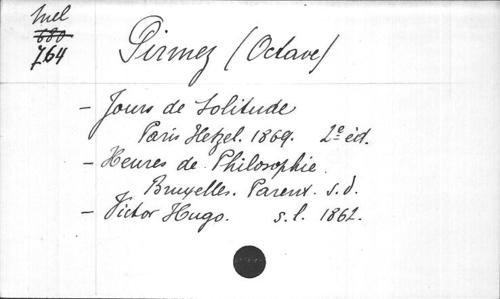 Mel
680
764
Pirmez (Octave)
- Jours de Solitude
Paris Hetzel. 1869. 2e éd.
- Heures de Philosophie.
Bruxelles. Parent. s. d.
- Victor Hugo. s. l. 1862.